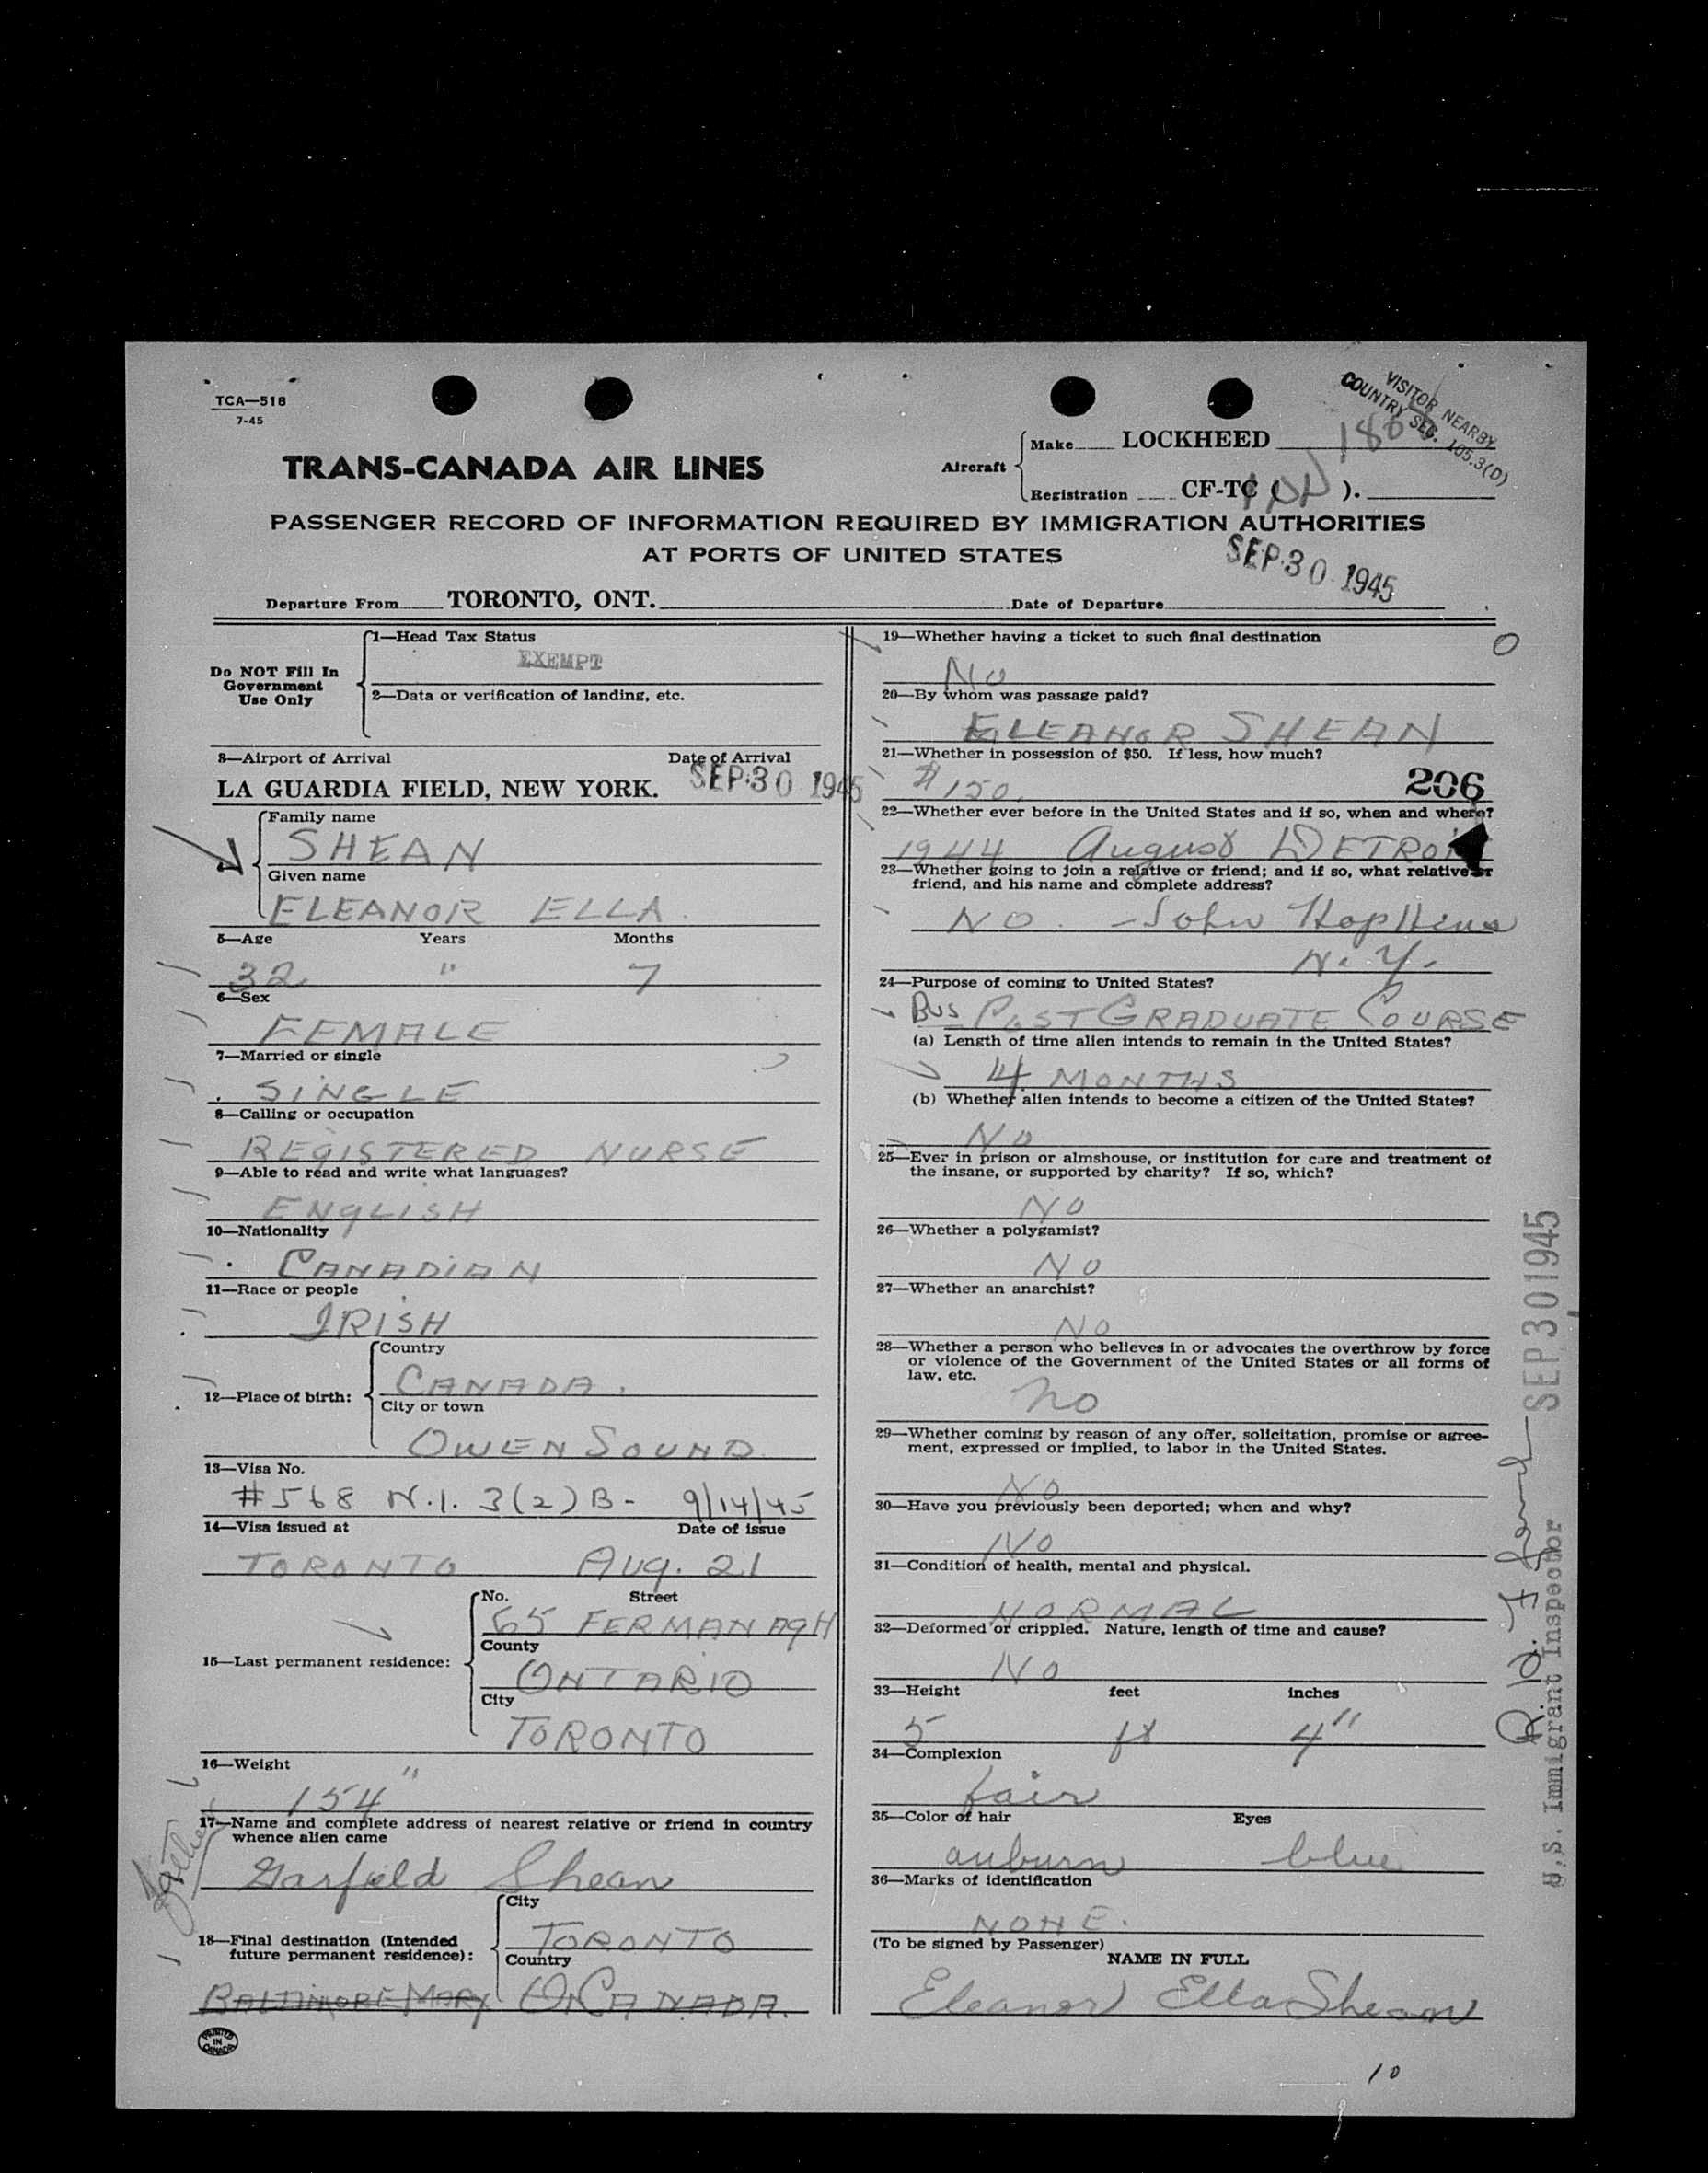 TCA—518
7-45
VISITOR NEARBY
COUNTRY SEC. 105.3(D)
TRANS-CANADA AIR LINES
Aircraft
Make LOCKHEED
Registration CF-TC ( ).
PASSENGER RECORD OF INFORMATION REQUIRED BY IMMIGRATION AUTHORITIES
AT PORTS OF UNITED STATES
SEP 30 1945
Departure From TORONTO, ONT. Date of Departure
Do NOT Fill In
Government
Use Only
1—Head Tax Status
EXEMPT
2—Data or verification of landing, etc.
3—Airport of Arrival Date of Arrival
LA GUARDIA FIELD, NEW YORK. SEP 30 1945
Family name
SHEAN
Given name
ELEANOR ELLA.
5—Age Years Months
32 " 7
6—Sex
FEMALE
7—Married or single
SINGLE
8—Calling or occupation
REGISTERED NURSE
9—Able to read and write what languages?
ENGLISH
10—Nationality
CANADIAN
11—Race or people
IRISH
12—Place of birth:
Country
CANADA.
City or town
OWEN SOUND.
13—Visa No.
#568 N.I. 3(2)B- 9/14/45
14—Visa issued at Date of issue
TORONTO AUG. 21
15—Last permanent residence:
No. Street
65 FERMANAGH
County
ONTARIO
City
TORONTO
16—Weight
154"
17—Name and complete address of nearest relative or friend in country
whence alien came
father
Garfield Shean
18—Final destination (Intended
future permanent residence):
City
TORONTO
Country
BALTIMORE MARY. CANADA.
PRINTED
IN
CANADA
19—Whether having a ticket to such final destination
0
No
20—By whom was passage paid?
ELEANOR SHEAN
21—Whether in possession of $50. If less, how much?
$150.
206
22—Whether ever before in the United States and if so, when and where?
1944 August DETROIT
23—Whether going to join a relative or friend; and if so, what relative or
friend, and his name and complete address?
NO. - John Hopkins
N.Y.
24—Purpose of coming to United States?
Bus POST GRADUATE COURSE
(a) Length of time alien intends to remain in the United States?
4 MONTHS
(b) Whether alien intends to become a citizen of the United States?
NO
25—Ever in prison or almshouse, or institution for care and treatment of
the insane, or supported by charity? If so, which?
NO
26—Whether a polygamist?
NO
27—Whether an anarchist?
NO
28—Whether a person who believes in or advocates the overthrow by force
or violence of the Government of the United States or all forms of
law, etc.
no
29—Whether coming by reason of any offer, solicitation, promise or agree-
ment, expressed or implied, to labor in the United States.
NO
30—Have you previously been deported; when and why?
NO
31—Condition of health, mental and physical.
NORMAL
32—Deformed or crippled. Nature, length of time and cause?
NO
33—Height feet inches
5 ft 4"
34—Complexion
fair
35—Color of hair Eyes
auburn blue
36—Marks of identification
NONE.
(To be signed by Passenger)
NAME IN FULL
Eleanor Ella Shean
SEP 30 1945
U.S. Immigrant Inspector
10